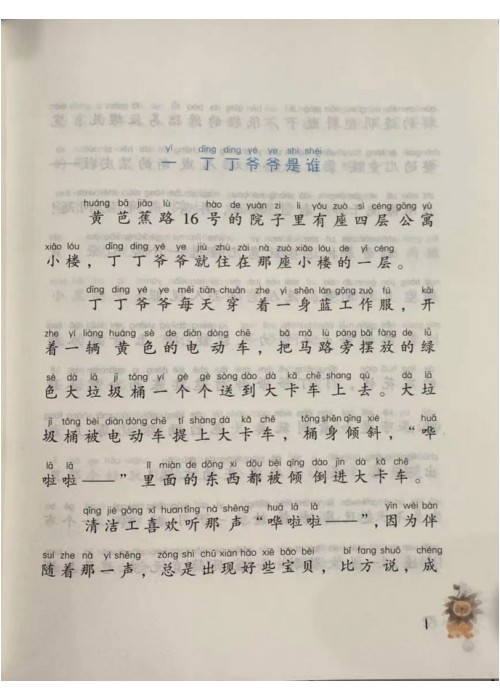 yī dīng dīng yé ye shì shéi
一 丁丁爷爷是谁
huáng bā jiāo lù hào de yuàn zi li yǒu zuò sì céng gōng yù
黄芭蕉路16号的院子里有座四层公寓
xiǎo lóu dīng dīng yé ye jiù zhù zài nà zuò xiǎo lóu de yī céng
小楼，丁丁爷爷就住在那座小楼的一层。
dīng dīng yé ye měi tiān chuān zhe yì shēn lán gōng zuò fú kāi
丁丁爷爷每天穿着一身蓝工作服，开
zhe yí liàng huáng sè de diàn dòng chē bǎ mǎ lù páng bǎi fàng de lǜ
着一辆黄色的电动车，把马路旁摆放的绿
sè dà lā jī tǒng yí gè gè sòng dào dà kǎ chē shang qù dà lā
色大垃圾桶一个个送到大卡车上去。大垃
jī tǒng bèi diàn dòng chē tí shàng dà kǎ chē tǒng shēn qīng xié huā
圾桶被电动车提上大卡车，桶身倾斜，“哗
lā lā lǐ miàn de dōng xi dōu bèi qīng dào jìn dà kǎ chē
啦啦——”里面的东西都被倾倒进大卡车。
qīng jié gōng xǐ huan tīng nà shēng huā lā lā yīn wèi bàn
清洁工喜欢听那声“哗啦啦——”，因为伴
suí zhe nà yì shēng zǒng shì chū xiàn hǎo xiē bǎo bèi bǐ fang shuō chéng
随着那一声，总是出现好些宝贝，比方说，成
1